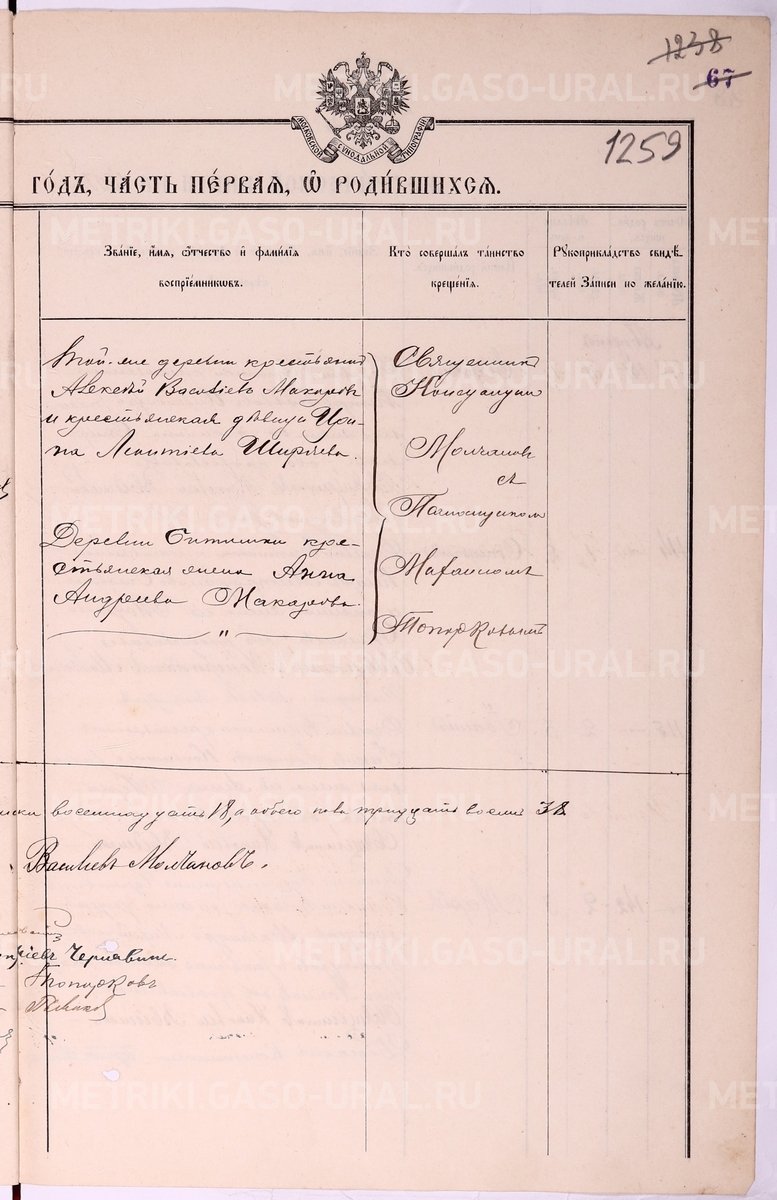 1238
67
1259
МОСКОВСКОЙ СѴНОДАЛЬНОЙ ТИПОГРАФІИ
ГОДЪ, ЧАСТЬ ПЕРВАЯ, Ѡ РОДИВШИХСЯ.
Званіе, имя, ѿчество и фамилія
воспріемниковъ.
Кто совершалъ таинство
крещенія.
Рукоприкладство свидѣ-
телей записи по желанію.
Той-же деревни крестьянинъ
Алексѣй Васильевъ Макаровъ
и крестьянская дѣвица Ири-
на Леонтіева Ширяева.
Священникъ
Молчановъ
съ
Деревни крес-
стьянская жена Анна
Андреева Макарова.
"
Топорковымъ
восемнадцать 18, а обоего пола тридцать восемь 38
Васильевъ Молчановъ.
Чернавинъ.
Топорковъ
METRIKI.GASO-URAL.RU